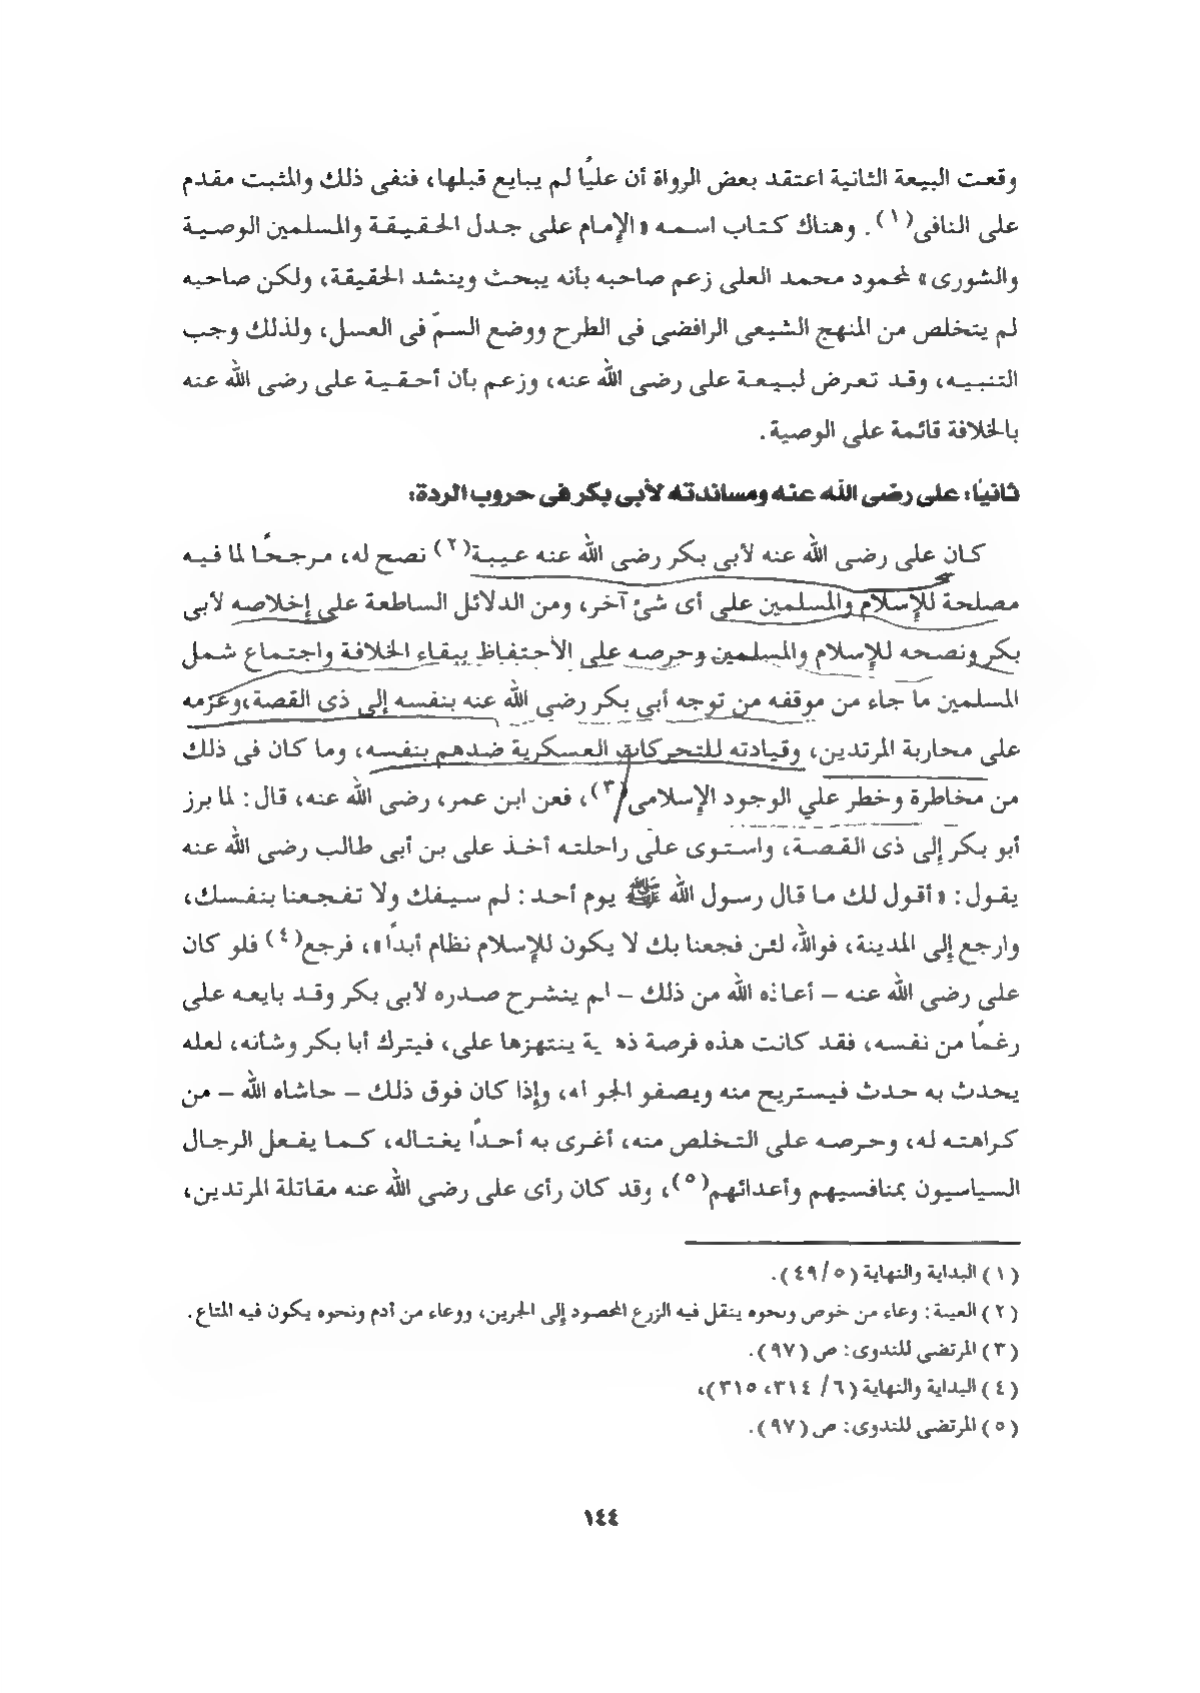 وقعت البيعة الثانية اعتقد بعض الرواة أن عليًا لم يبايع قبلها، فنفى ذلك والمثبت مقدم
على النافى(١). وهناك كتاب اسمه «الإمام على جدل الحقيقة والمسلمين الوصية
والشورى» لمحمود محمد العلى زعم صاحبه بأنه يبحث وينشد الحقيقة، ولكن صاحبه
لم يتخلص من المنهج الشيعى الرافضى فى الطرح ووضع السمّ فى العسل، ولذلك وجب
التنبيه، وقد تعرض لبيعة على رضى الله عنه، وزعم بأن أحقية على رضى الله عنه
بالخلافة قائمة على الوصية.
ثانيًا: على رضى الله عنه ومساندته لأبى بكر فى حروب الردة:
كان على رضى الله عنه لأبى بكر رضى الله عنه عيبة(٢) نصح له، مرجحًا لما فيه
مصلحة للإسلام والمسلمين على أى شئ آخر، ومن الدلائل الساطعة على إخلاصه لأبى
بكر ونصحه للإسلام والمسلمين وحرصه على الأحتفاظ ببقاء الخلافة واجتماع شمل
المسلمين ما جاء من موقفه من توجه أبي بكر رضى الله عنه بنفسه إلى ذى القصة، وعزمه
على محاربة المرتدين، وقيادته للتحركات العسكرية ضدهم بنفسه، وما كان فى ذلك
من مخاطرة وخطر علي الوجود الإسلامى(٣)، فعن ابن عمر، رضى الله عنه، قال: لما برز
أبو بكر إلى ذى القصة، واستوى على راحلته أخذ على بن أبى طالب رضى الله عنه
يقول: «أقول لك ما قال رسول الله ﷺ يوم أحد: لم سيفك ولا تفجعنا بنفسك،
وارجع إلى المدينة، فوالله، لئن فجعنا بك لا يكون للإسلام نظام أبداً»، فرجع(٤) فلو كان
على رضى الله عنه – أعاذه الله من ذلك – لم ينشرح صدره لأبى بكر وقد بايعه على
رغمًا من نفسه، فقد كانت هذه فرصة ذهبية ينتهزها على، فيترك أبا بكر وشأنه، لعله
يحدث به حدث فيستريح منه ويصفو الجو له، وإذا كان فوق ذلك – حاشاه الله – من
كراهته له، وحرصه على التخلص منه، أغرى به أحداً يغتاله، كما يفعل الرجال
السياسيون بمنافسيهم وأعدائهم(٥)، وقد كان رأى على رضى الله عنه مقاتلة المرتدين،
(١) البداية والنهاية (٤٩/٥).
(٢) العيبة: وعاء من خوص ونحوه ينقل فيه الزرع المحصود إلى الجرين، ووعاء من أدم ونحوه يكون فيه المتاع.
(٣) المرتضى للندوى: ص (٩٧).
(٤) البداية والنهاية (٦/ ٣١٤، ٣١٥)،
(٥) المرتضى للندوى: ص (٩٧).
١٤٤